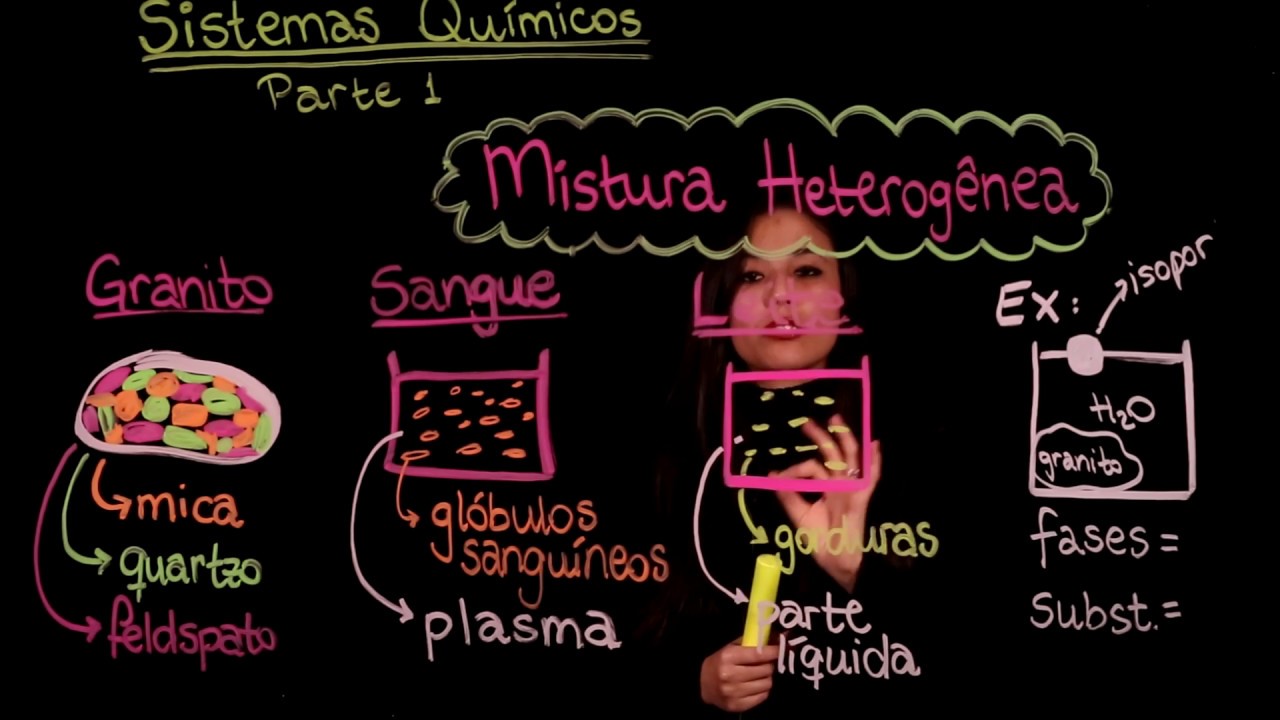 Sistemas Químicos
Parte 1
Mistura Heterogênea
Granito
mica
quartzo
feldspato
Sangue
glóbulos
sanguíneos
plasma
gorduras
parte
líquida
Ex:
isopor
H₂O
granito
fases =
Subst. =